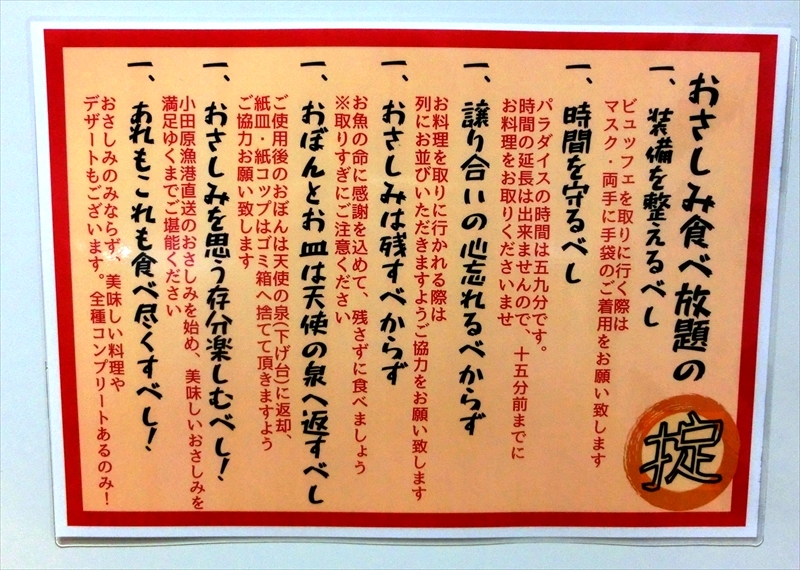 おさしみ食べ放題の
掟
一、装備を整えるべし
ビュッフェを取りに行く際は
マスク・両手に手袋のご着用をお願い致します
一、時間を守るべし
パラダイスの時間は五九分です。
時間の延長は出来ませんので、十五分前までに
お料理をお取りくださいませ
一、譲り合いの心忘れるべからず
お料理を取りに行かれる際は
列にお並びいただきますようご協力をお願い致します
一、おさしみは残すべからず
お魚の命に感謝を込めて、残さずに食べましょう
※取りすぎにご注意ください
一、おぼんとお皿は天使の泉へ返すべし
ご使用後のおぼんは天使の泉(下げ台)に返却、
紙皿・紙コップはゴミ箱へ捨てて頂きますよう
ご協力お願い致します
一、おさしみを思う存分楽しむべし!
小田原漁港直送のおさしみを始め、美味しいおさしみを
満足ゆくまでご堪能ください
一、あれもこれも食べ尽くすべし!
おさしみのみならず、美味しい料理や
デザートもございます。全種コンプリートあるのみ!